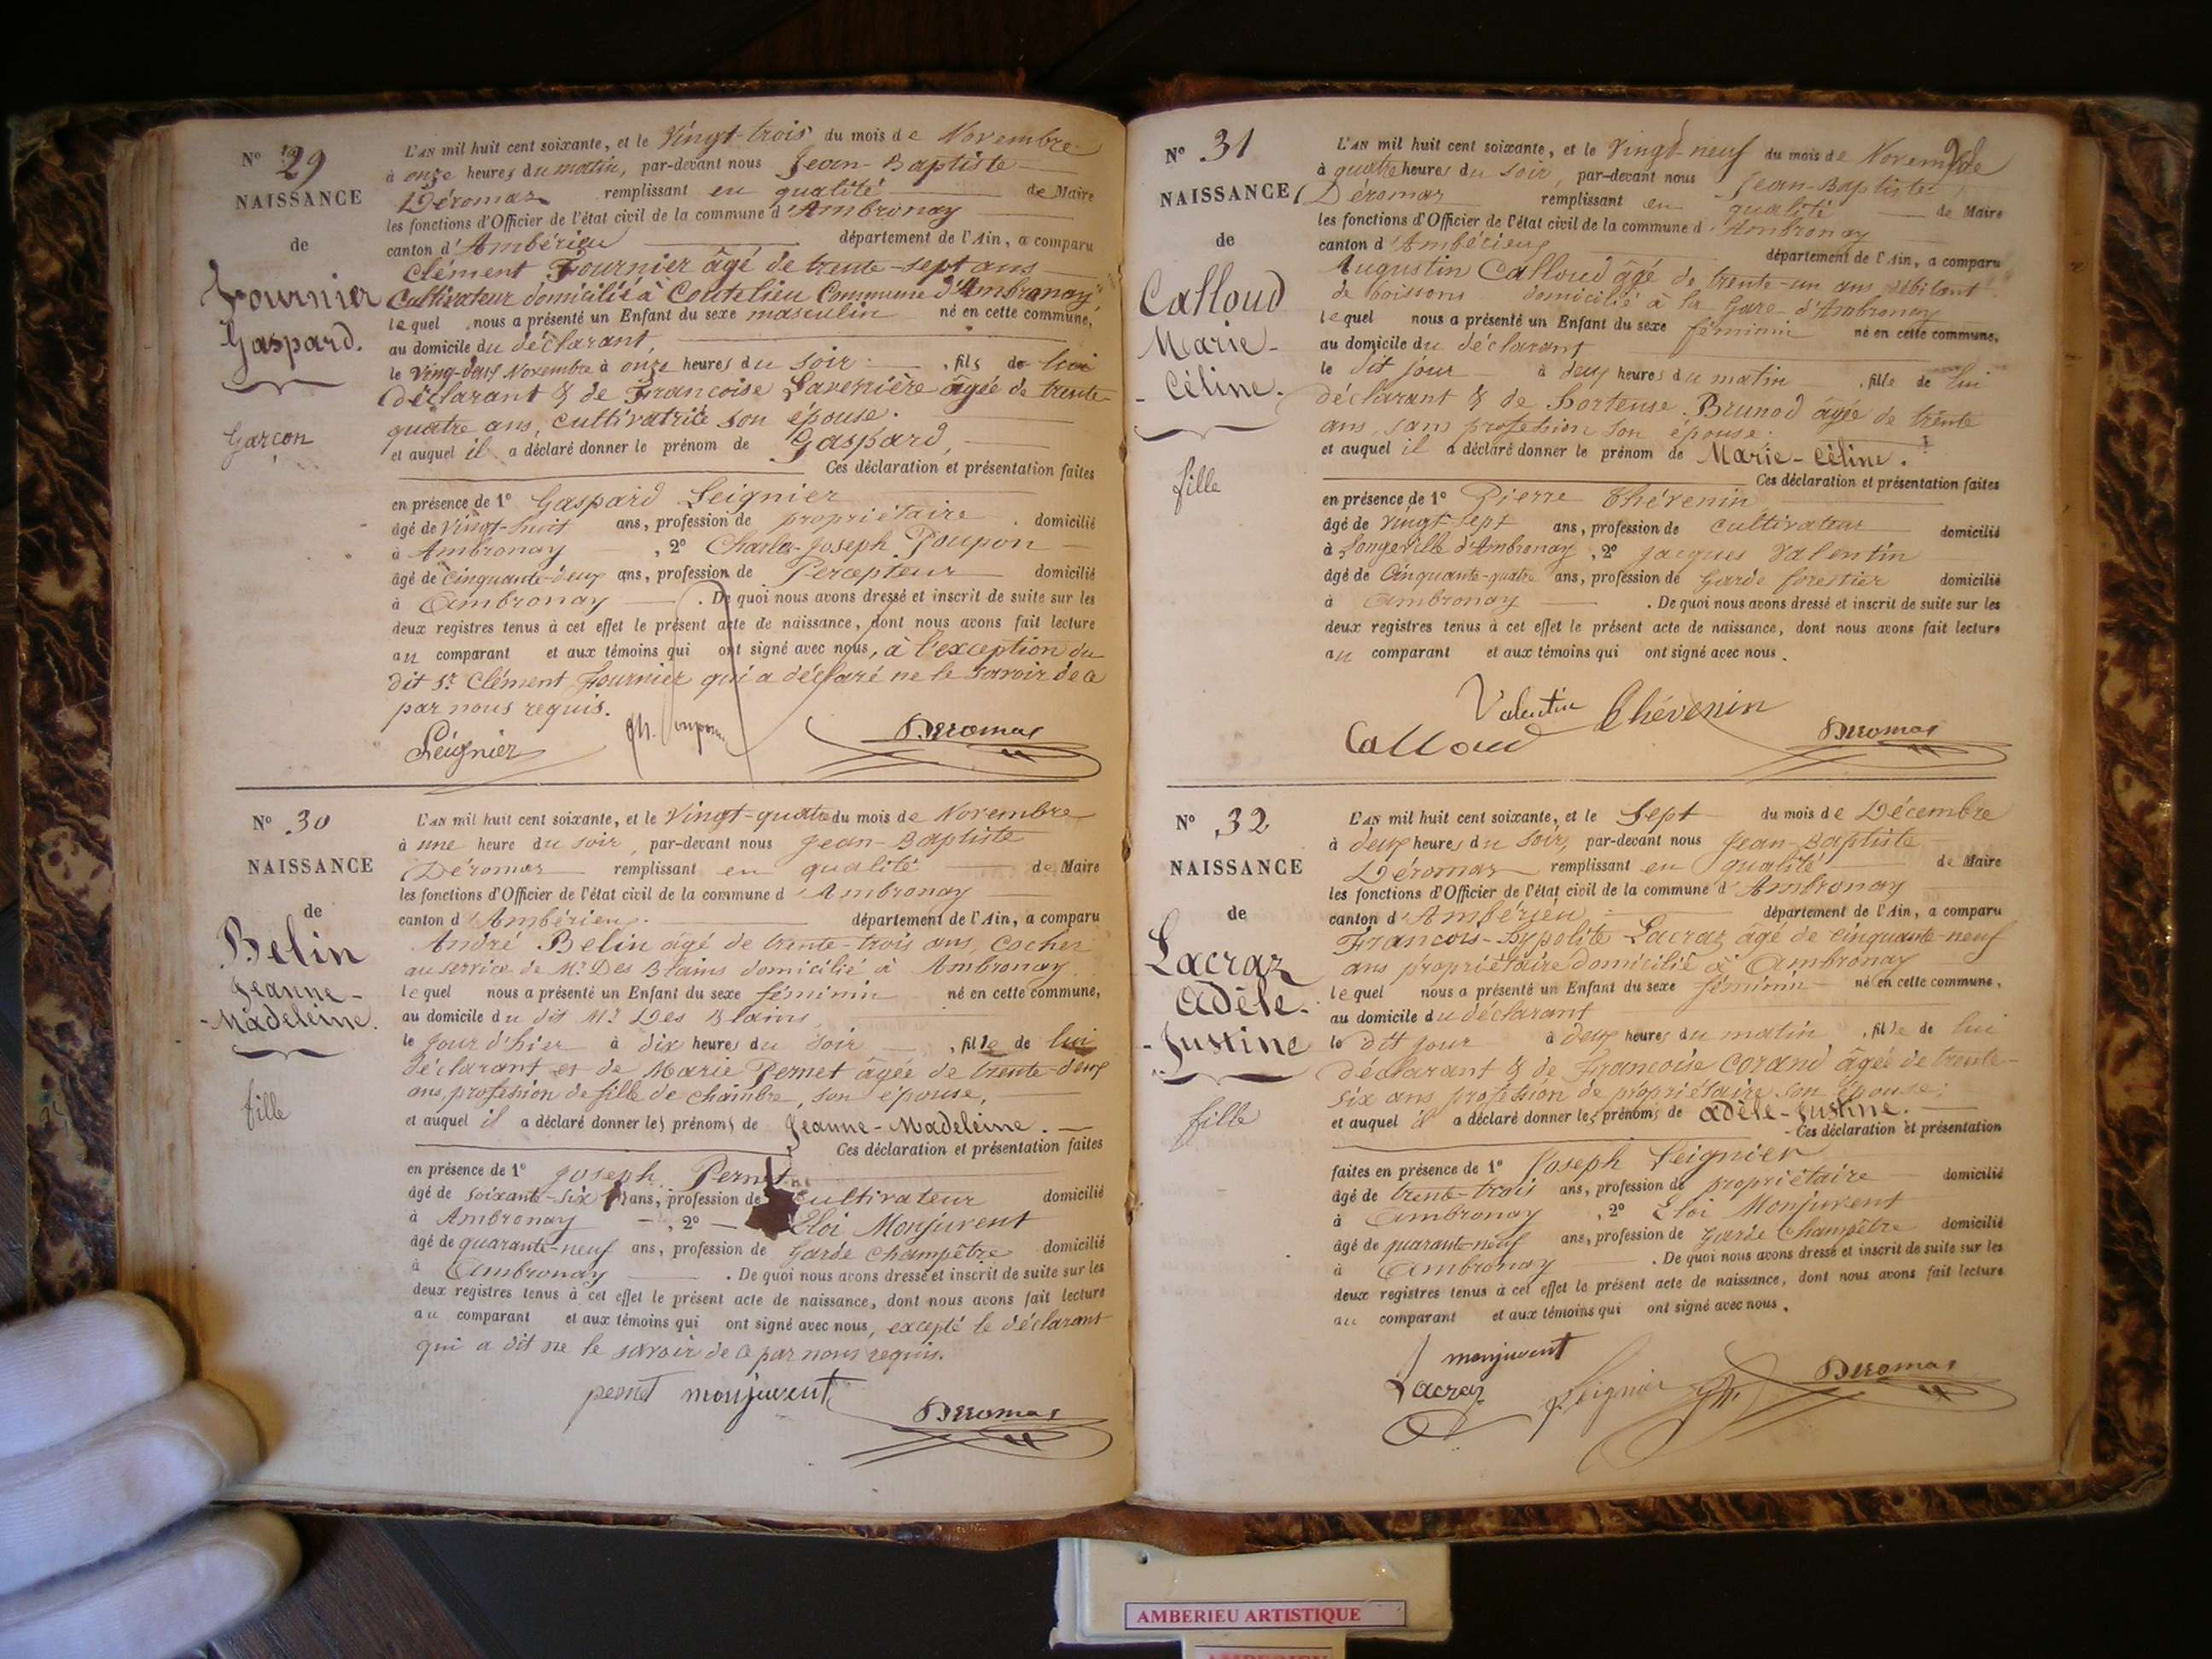 N° 29
NAISSANCE
de
Fournier
Gaspard.
Garçon
L'AN mil huit cent soixante, et le Vingt-trois du mois de Novembre
à onze heures du matin, par-devant nous Jean-Baptiste
Déromas remplissant en qualité de Maire
les fonctions d'Officier de l'état civil de la commune d'Ambronay
canton d'Ambérieu département de l'Ain, a comparu
Clément Fournier âgé de trente-sept ans
Cultivateur domicilié à Coutelieu Commune d'Ambronay,
lequel nous a présenté un Enfant du sexe masculin né en cette commune,
au domicile du déclarant,
le Ving-deux Novembre à onze heures du soir, fils de lui
déclarant & de Françoise Laverrière âgée de trente-
quatre ans, cultivatrice son épouse.
et auquel il a déclaré donner le prénom de Gaspard,
Ces déclaration et présentation faites
en présence de 1° Gaspard Leignier
âgé de Vingt-huit ans, profession de propriétaire, domicilié
à Ambronay, 2° Charles-Joseph Poupon
âgé de Cinquante-deux ans, profession de Percepteur domicilié
à Ambronay. De quoi nous avons dressé et inscrit de suite sur les
deux registres tenus à cet effet le présent acte de naissance, dont nous avons fait lecture
au comparant et aux témoins qui ont signé avec nous, à l'exception du
dit Sr. Clément Fournier qui a déclaré ne le savoir de ce
par nous requis.
Leignier Ch. Poupon Deromas
N° 30
NAISSANCE
de
Belin
Jeanne-
-Madeleine.
fille
L'AN mil huit cent soixante, et le Vingt-quatre du mois de Novembre
à une heure du soir, par-devant nous Jean-Baptiste
Déromas remplissant en qualité de Maire
les fonctions d'Officier de l'état civil de la commune d'Ambronay
canton d'Ambérieux. département de l'Ain, a comparu
André Belin âgé de trente-trois ans, Cocher
au service de Mr. Des Blains domicilié à Ambronay
lequel nous a présenté un Enfant du sexe féminin né en cette commune,
au domicile du dit Mr. Des Blains
le jour d'hier à dix heures du soir, fille de lui
déclarant et de Marie Pernet âgée de trente-deux
ans, profession de fille de chambre, son épouse,
et auquel il a déclaré donner les prénoms de Jeanne-Madeleine.
Ces déclaration et présentation faites
en présence de 1° Joseph Pernet
âgé de soixante-six ans, profession de cultivateur domicilié
à Ambronay, 2° Eloi Monjuvent
âgé de quarante-neuf ans, profession de Garde Champêtre domicilié
à Ambronay. De quoi nous avons dressé et inscrit de suite sur les
deux registres tenus à cet effet le présent acte de naissance, dont nous avons fait lecture
au comparant et aux témoins qui ont signé avec nous, excepté le déclarant
qui a dit ne le savoir de ce par nous requis.
pernet monjuvent Deromas
N° 31
NAISSANCE
de
Calloud
Marie-
-Céline.
fille
L'AN mil huit cent soixante, et le Vingt-neuf du mois de Novembre
à quatre heures du soir, par-devant nous Jean-Baptiste
Déromas remplissant en qualité de Maire
les fonctions d'Officier de l'état civil de la commune d'Ambronay
canton d'Ambérieux département de l'Ain, a comparu
Augustin Calloud âgé de trente-un ans débitant
de boissons domicilié à la Gare d'Ambronay
lequel nous a présenté un Enfant du sexe féminin né en cette commune,
au domicile du déclarant
le dit jour à deux heures du matin, fille de lui
déclarant & de Hortense Brunod âgée de trente
ans, sans profession son épouse.
et auquel il a déclaré donner le prénom de Marie-Céline.
Ces déclaration et présentation faites
en présence de 1° Pierre Thévenin
âgé de vingt-sept ans, profession de cultivateur domicilié
à Longeville d'Ambronay, 2° Jacques Valentin
âgé de Cinquante-quatre ans, profession de Garde forestier domicilié
à Ambronay. De quoi nous avons dressé et inscrit de suite sur les
deux registres tenus à cet effet le présent acte de naissance, dont nous avons fait lecture
au comparant et aux témoins qui ont signé avec nous.
Valentin Thévenin
Calloud Deromas
N° 32
NAISSANCE
de
Lacraz
Adèle-
-Justine
fille
L'AN mil huit cent soixante, et le Sept du mois de Décembre
à deux heures du soir, par-devant nous Jean-Baptiste
Déromas remplissant en qualité de Maire
les fonctions d'Officier de l'état civil de la commune d'Ambronay
canton d'Ambérieu département de l'Ain, a comparu
François-Hypolite Lacraz âgé de cinquante-neuf
ans propriétaire domicilié à Ambronay
lequel nous a présenté un Enfant du sexe féminin né en cette commune,
au domicile du déclarant
le dit jour à deux heures du matin, fille de lui
déclarant & de Françoise Corand âgée de trente-
six ans profession de propriétaire son épouse;
et auquel il a déclaré donner les prénoms de Adèle-Justine.
Ces déclaration et présentation
faites en présence de 1° Joseph Leignier
âgé de trente-trois ans, profession de propriétaire domicilié
à Ambronay, 2° Eloi Monjuvent
âgé de quarante-neuf ans, profession de Garde Champêtre domicilié
à Ambronay. De quoi nous avons dressé et inscrit de suite sur les
deux registres tenus à cet effet le présent acte de naissance, dont nous avons fait lecture
au comparant et aux témoins qui ont signé avec nous.
monjuvent
Lacraz Leignier Deromas
AMBERIEU ARTISTIQUE
AMBERIEU